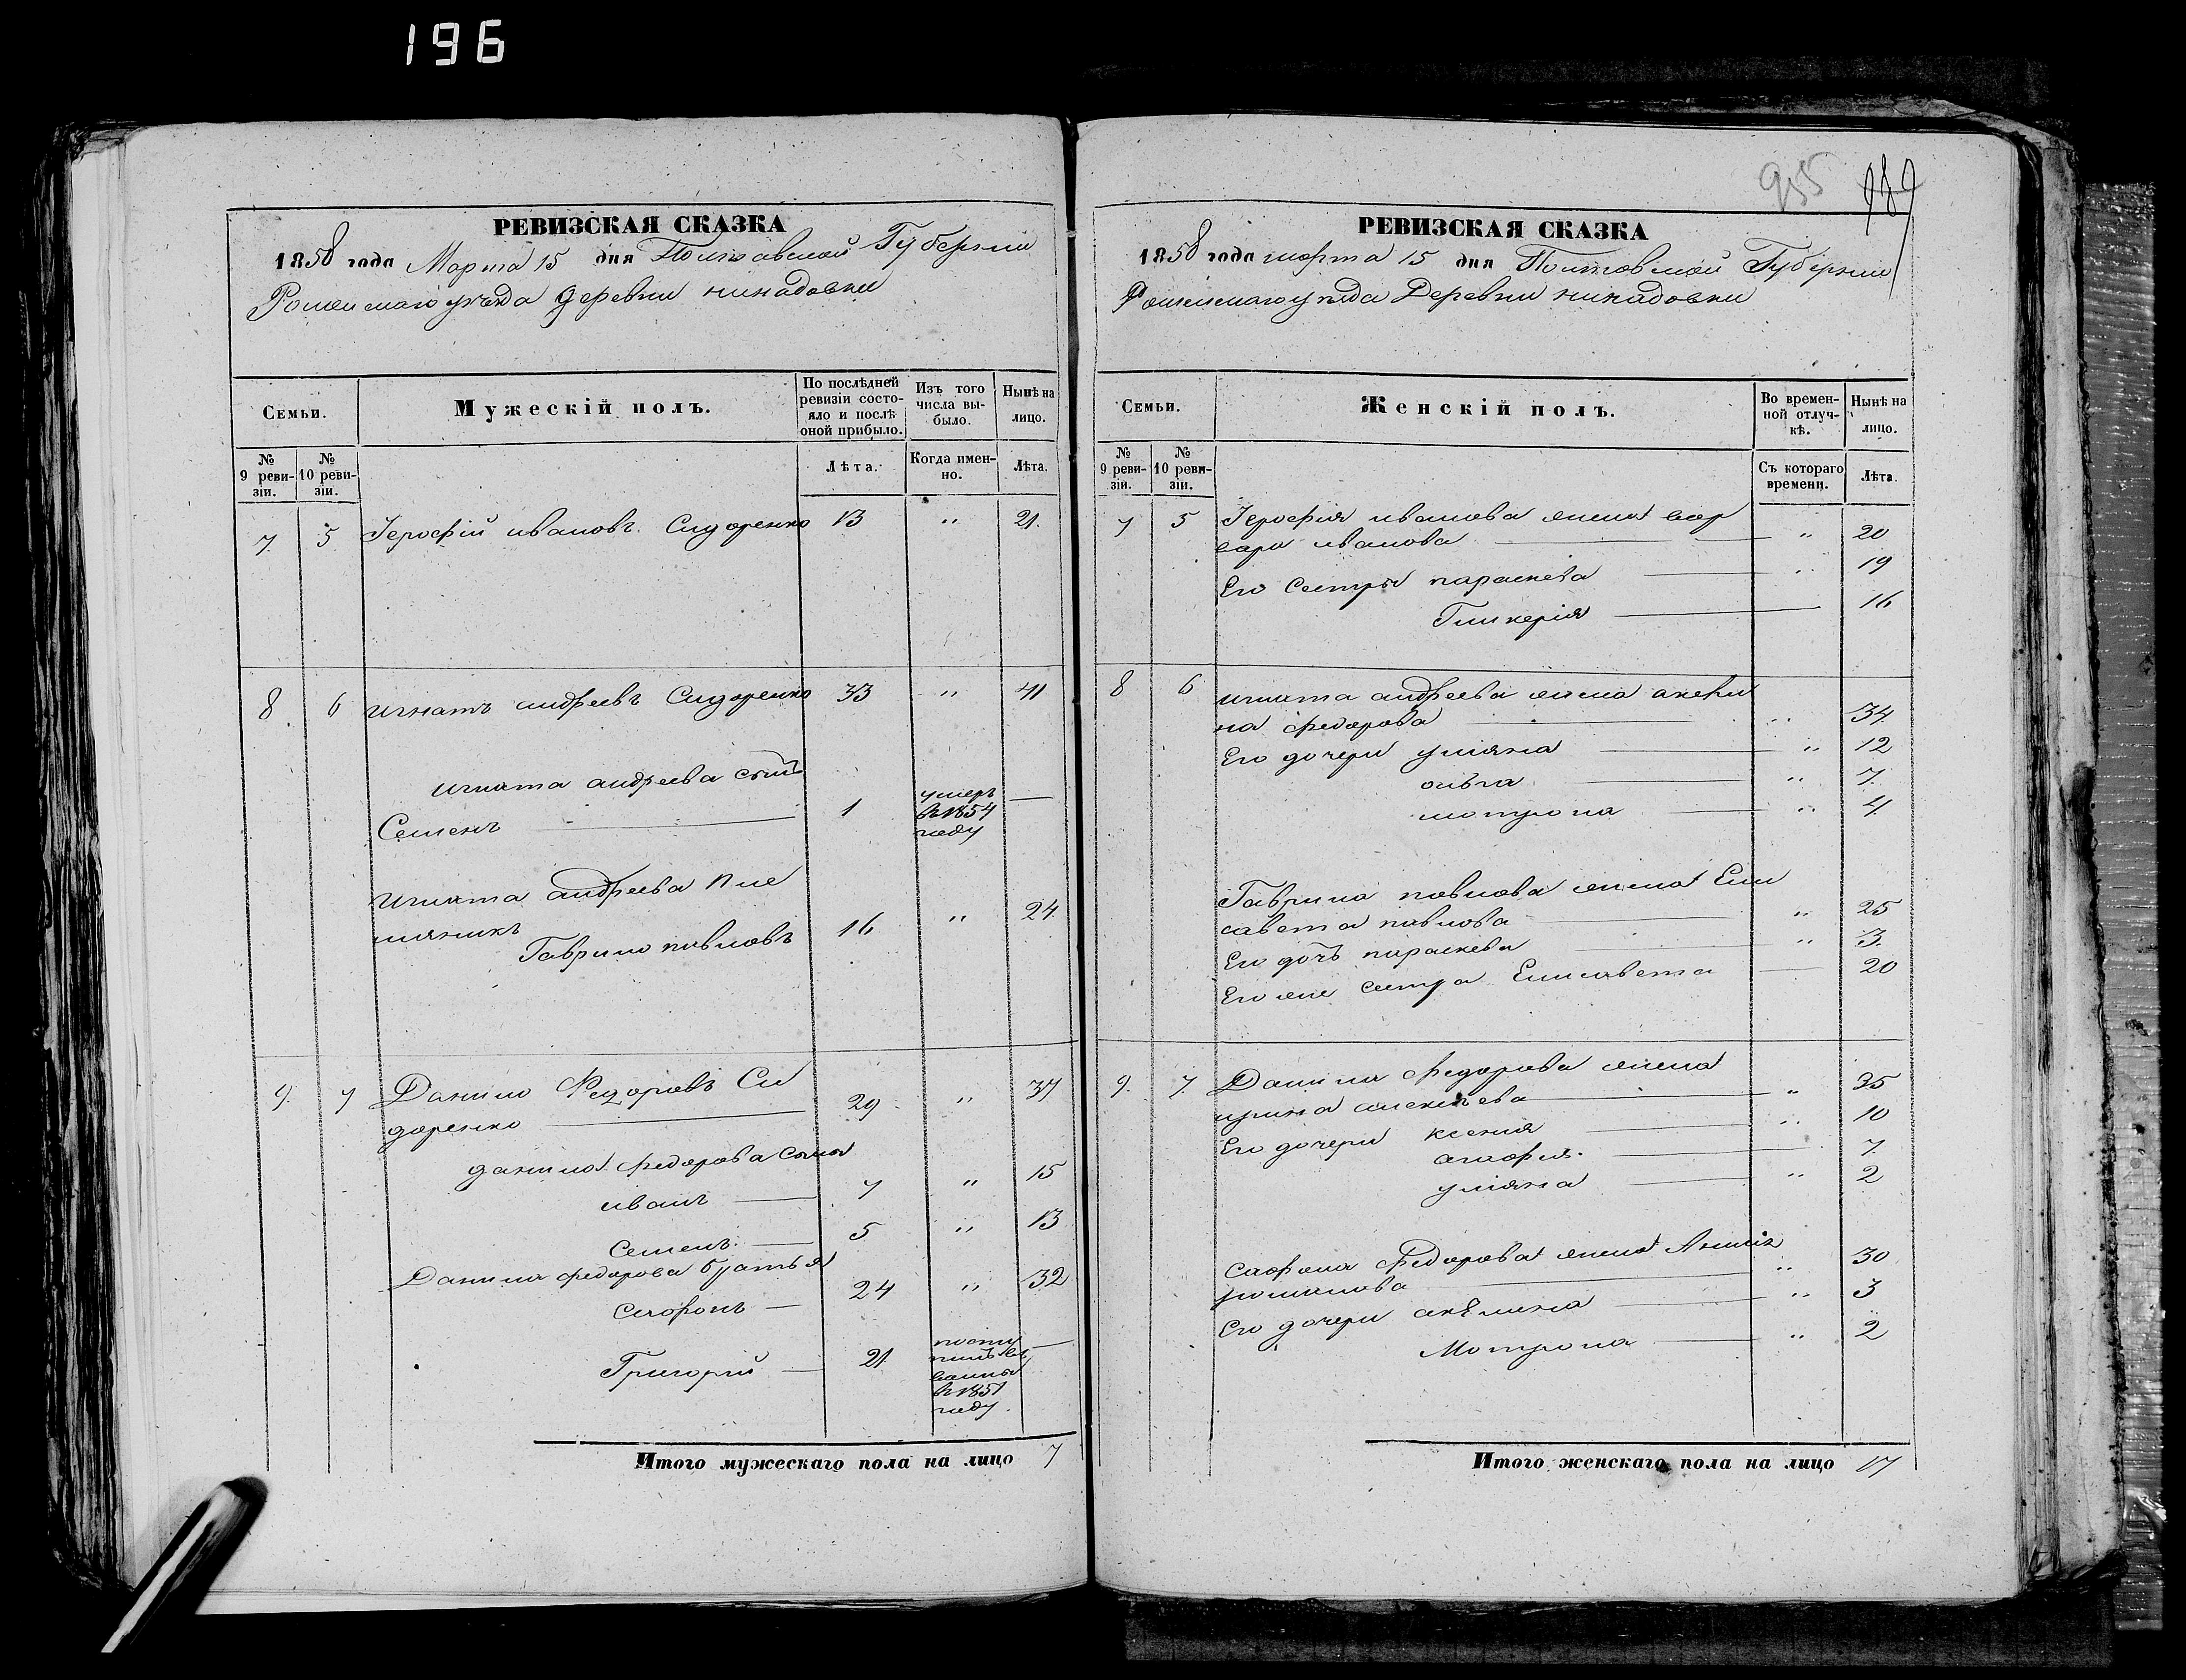 196
РЕВИЗСКАЯ СКАЗКА
1858 года Марта 15 дня Полтавской Губернии
Роменскаго уезда деревни
Семьи.
Мужескiй полъ.
По послѣдней ревизiи состояло и послѣ оной прибыло.
Изъ того числа выбыло.
Нынѣ на лицо.
№ 9 ревизiи.
№ 10 ревизiи.
Лѣта.
Когда именно.
Лѣта.
7 5 Iерофiй ивановъ Сидоренко 13 " 21.
8 6 игнатъ андреевъ Сидоренко 33 " 41
игната андреева сынъ
Семенъ 1 умеръ въ 1854 году —
игната андреева пле
мяникъ
Гаврило павловъ 16 " 24
9. 7 Данило Федоровъ Си
доренко 29 " 37
данила федорова сыны
иванъ 7 " 15
Семенъ 5 " 13
Данила федорова братья
Сафонъ 24 " 32
Григорiй 21 посту пилъ въ 1851 году —
Итого мужескаго пола на лицо 7
955 989
РЕВИЗСКАЯ СКАЗКА
1858 года марта 15 дня Полтавской Губернiи
Роменскаго уезда Деревни
Семьи.
Женскiй полъ.
Во временной отлучкѣ.
Нынѣ на лицо.
№ 9 ревизiи.
№ 10 ревизiи.
Съ котораго времени.
Лѣта.
7 5 Iерофия иванова жена вар
вара иванова " 20
Его сестры параскева " 19
Гликерiя 16
8 6 игната андреева жена акели
на федорова " 34
Его дочери улiяна " 12
ольга " 7
мотрона " 4
Гаврила павлова жена Ели
савета павлова " 25
Его дочь параскева " 3
Его же сестра Елисавета 20
9. 7. Данила федорова жена
ирина алексѣева " 35
Его дочери ксения " 10
агафия 7
улiяна " 2
Сафона Федорова жена
романова " 30
Его дочери акѣлина " 3
Мотрона " 2
Итого женскаго пола на лицо 17